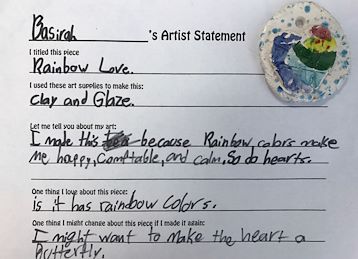 Basirah's Artist Statement
I titled this piece
Rainbow Love.
I used these art supplies to make this:
Clay and Glaze.
Let me tell you about my art:
I made this because Rainbow colors make
me happy, Comftable, and calm, So do hearts.
One thing I love about this piece:
is it has rainbow colors.
One thing I might change about this piece if I made it again:
I might want to make the heart a
Butterfly.